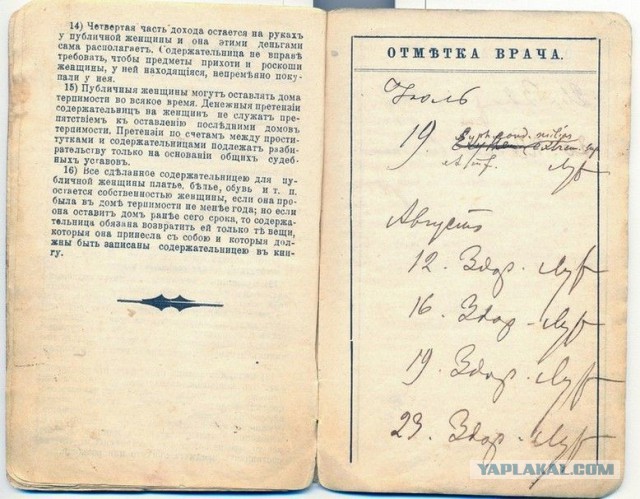 14) Четвертая часть дохода остается на рукахъ
у публичной женщины и она этими деньгами
сама располагаетъ. Содержательница не вправѣ
требовать, чтобы предметы прихоти и роскоши
женщины, у ней находящiяся, непремѣнно поку-
пали у нея.
15) Публичныя женщины могутъ оставлять дома
терпимости во всякое время. Денежныя претензiи
содержательницъ на женщинъ не служатъ пре-
пятствiемъ къ оставленiю послѣдними домовъ
терпимости. Претензiи по счетамъ между прости-
тутками и содержательницами подлежатъ разби-
рательству только на основанiи общихъ судеб-
ныхъ уставовъ.
16) Все сдѣланное содержательницею для пу-
бличной женщины платье, бѣлье, обувь и т. п.
остается собственностью женщины, если она про-
была въ домѣ терпимости не менѣе года; но если
она оставитъ домъ ранѣе сего срока, то содержа-
тельница обязана возвратить ей только тѣ вещи,
которыя она принесла съ собою и которыя дол-
жны быть записаны содержательницею въ кни-
гу.
ОТМѢТКА ВРАЧА.
Iюль
19
Августъ
12. Здор.
16. Здор.
19. Здор.
23. Здор.
YAPLAKAL.COM